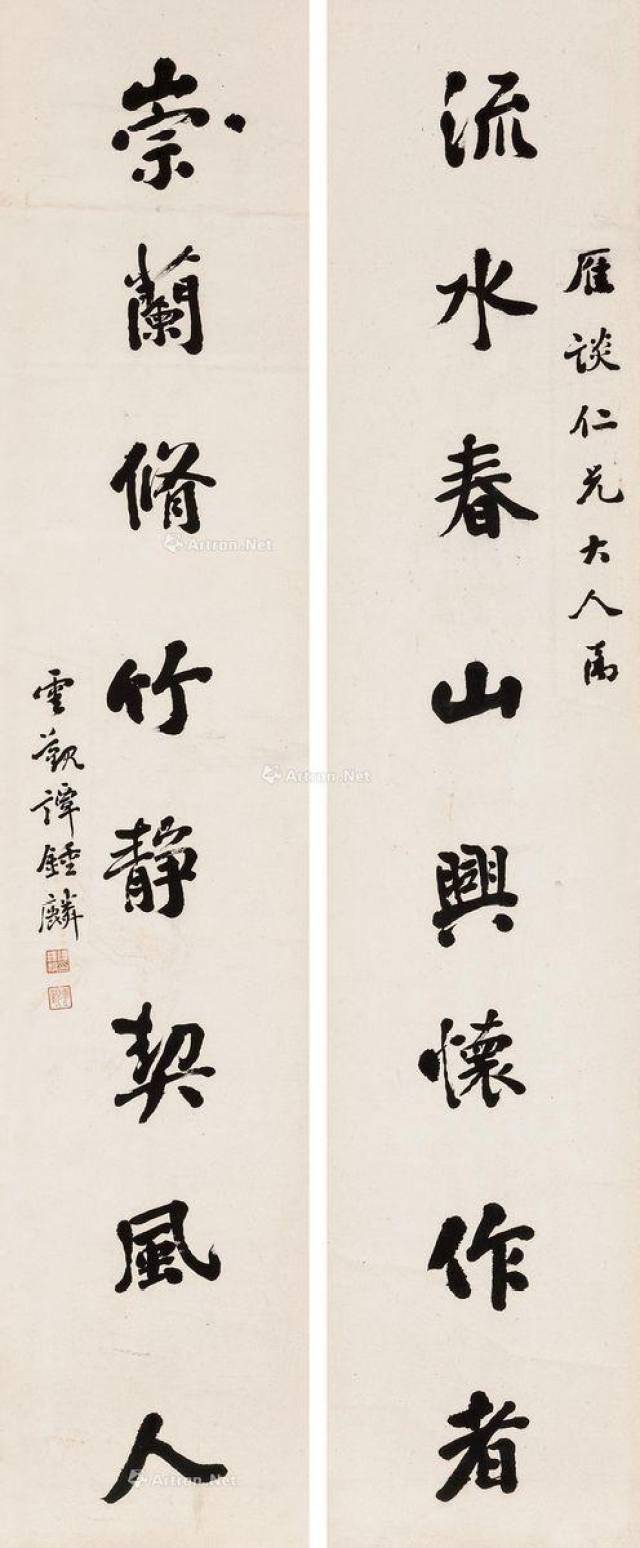 雁談仁兄大人屬
流水春山興懷作者
崇蘭脩竹靜契風人
雲覲譚鍾麟
Artron.Net
Artron.Net
Artron.Net